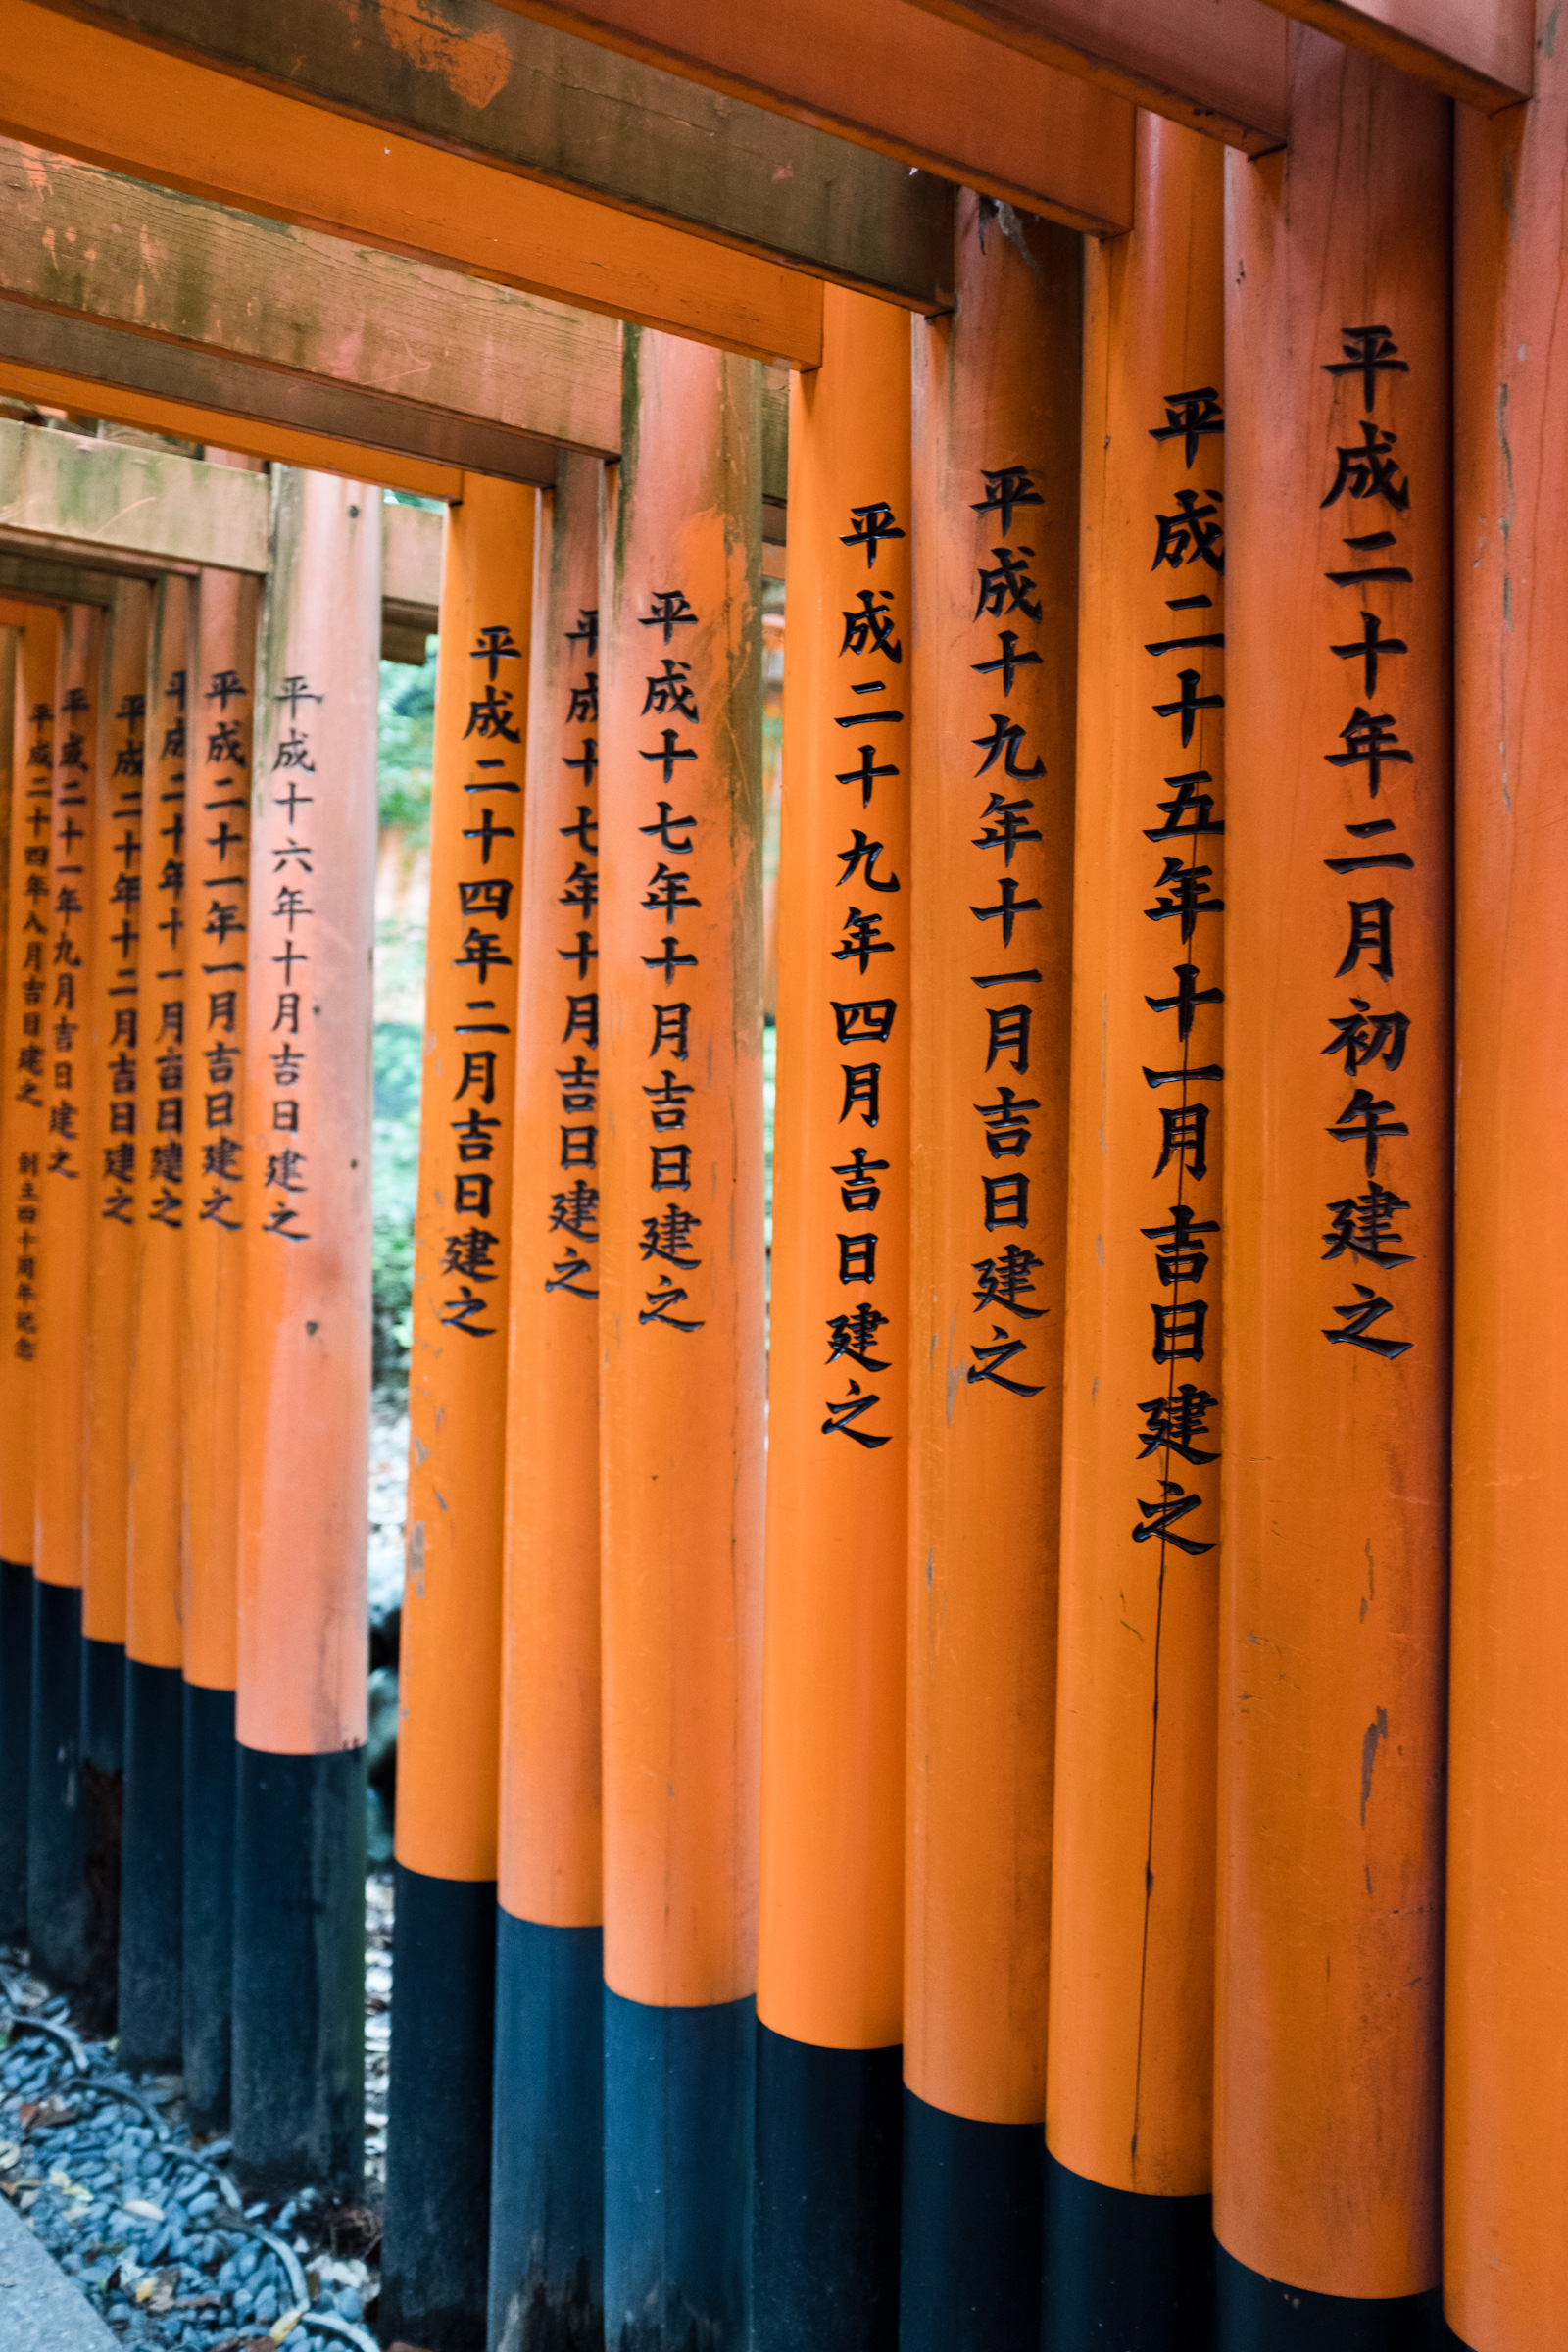 平成二十年二月初午建之
平成二十五年十一月吉日建之
平成十九年十一月吉日建之
平成二十九年四月吉日建之
平成十七年十月吉日建之
平成十七年十月吉日建之
平成二十四年二月吉日建之
平成十六年十月吉日建之
平成二十一年一月吉日建之
平成二十年十一月吉日建之
平成二十年十二月吉日建之
平成二十一年九月吉日建之
平成二十四年八月吉日建之 創立四十周年記念